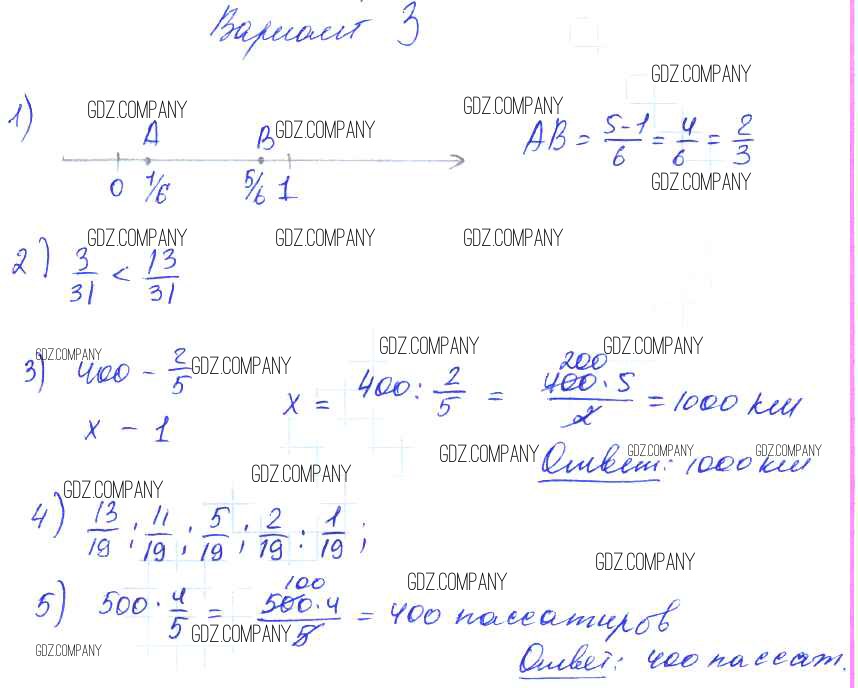 Вариант 3
GDZ.COMPANY
1) GDZ.COMPANY GDZ.COMPANY
A B GDZ.COMPANY AB = 5-1/6 = 4/6 = 2/3
0 1/6 5/6 1 GDZ.COMPANY
GDZ.COMPANY GDZ.COMPANY GDZ.COMPANY
2) 3/31 < 13/31
GDZ.COMPANY GDZ.COMPANY GDZ.COMPANY
3) 400 - 2/5 GDZ.COMPANY
x - 1 x = 400 : 2/5 = 200 400·5/2 = 1000 км
GDZ.COMPANY Ответ: GDZ.COMPANY 1000 км GDZ.COMPANY
GDZ.COMPANY GDZ.COMPANY
4) 13/19 ; 11/19 ; 5/19 ; 2/19 ; 1/19 ;
GDZ.COMPANY GDZ.COMPANY
5) 500 · 4/5 = 100 500·4/5 = 400 пассажиров
GDZ.COMPANY GDZ.COMPANY
Ответ: 400 пассаж.